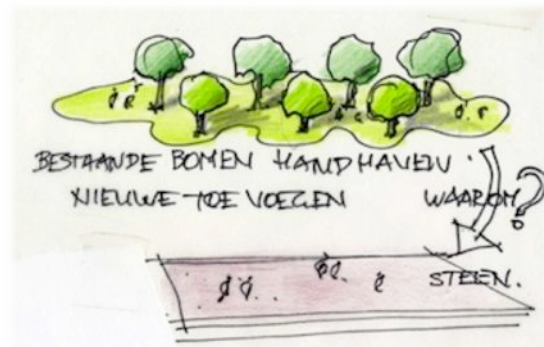 BESTAANDE BOMEN HANDHAVEN.
NIEUWE TOE VOEGEN
WAAROM?
STEEN.